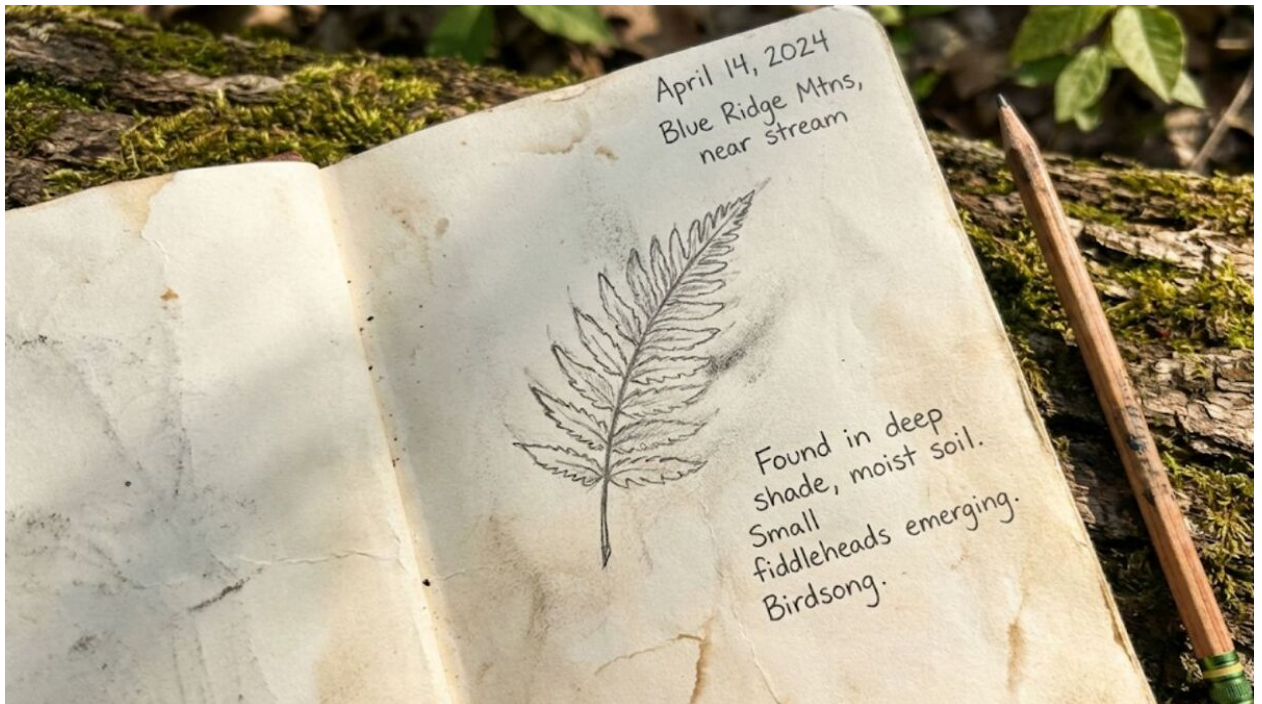 April 14, 2024
Blue Ridge Mtns,
near stream
Found in deep
shade, moist soil.
Small
fiddleheads emerging.
Birdsong.